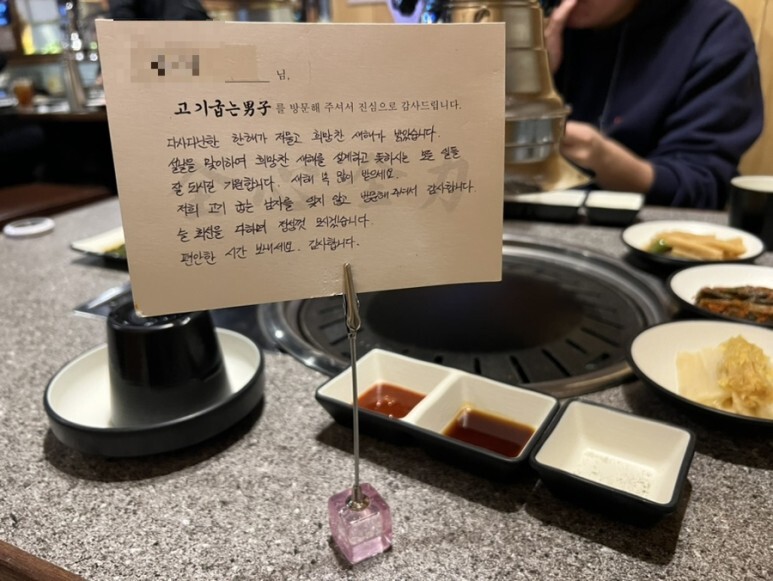 님,
고기굽는男子를 방문해 주셔서 진심으로 감사드립니다.
다사다난한 한해가 저물고 희망찬 새해가 밝았습니다.
설날을 맞이하여 희망찬 새해를 설계하고 뜻하시는 모든 일들
잘 되시길 기원합니다. 새해 복 많이 받으세요.
저희 고기 굽는 남자를 잊지 않고 방문해 주셔서 감사합니다.
늘 최선을 다하며 정성껏 모시겠습니다.
편안한 시간 보내세요. 감사합니다.